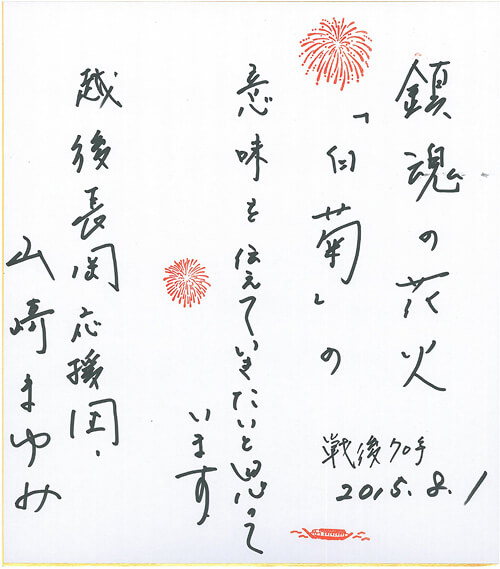 鎮魂の花火
「白菊」の
意味を伝えていきたいと思って
います。
戦後70年
2015.8.1
越後長岡応援団・
山崎まゆみ